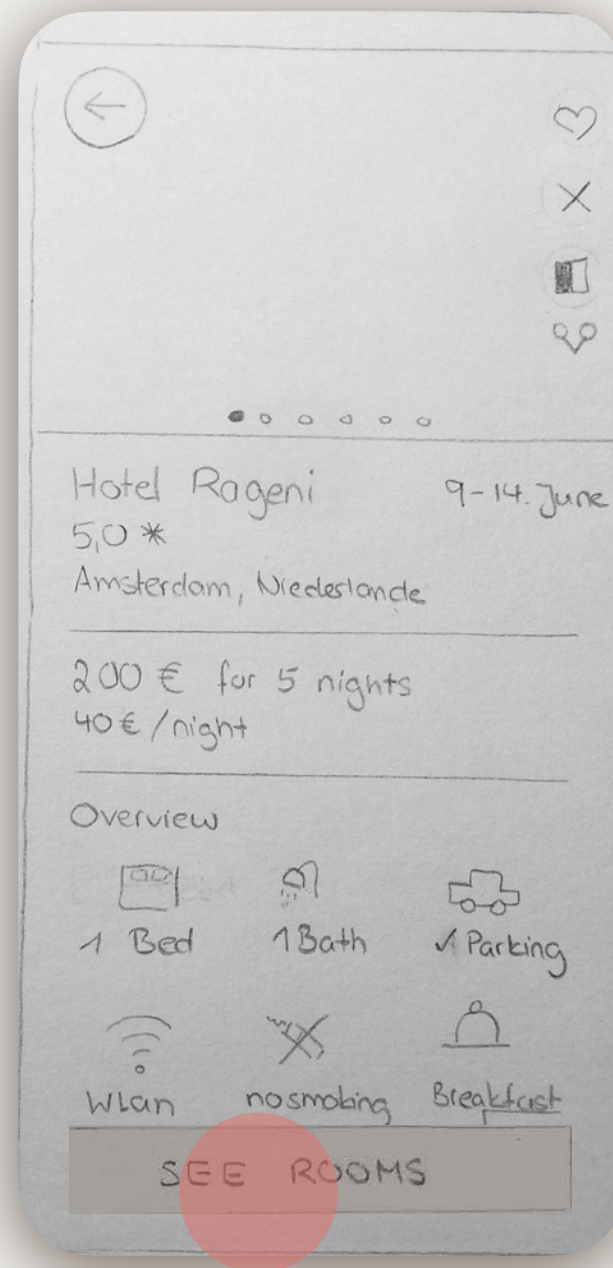 Hotel Rageni
9-14. June
5,0 *
Amsterdam, Niederlande
200 € for 5 nights
40€/night
Overview
1 Bed
1 Bath
✓ Parking
WLan
no smoking
Breakfast
SEE ROOMS